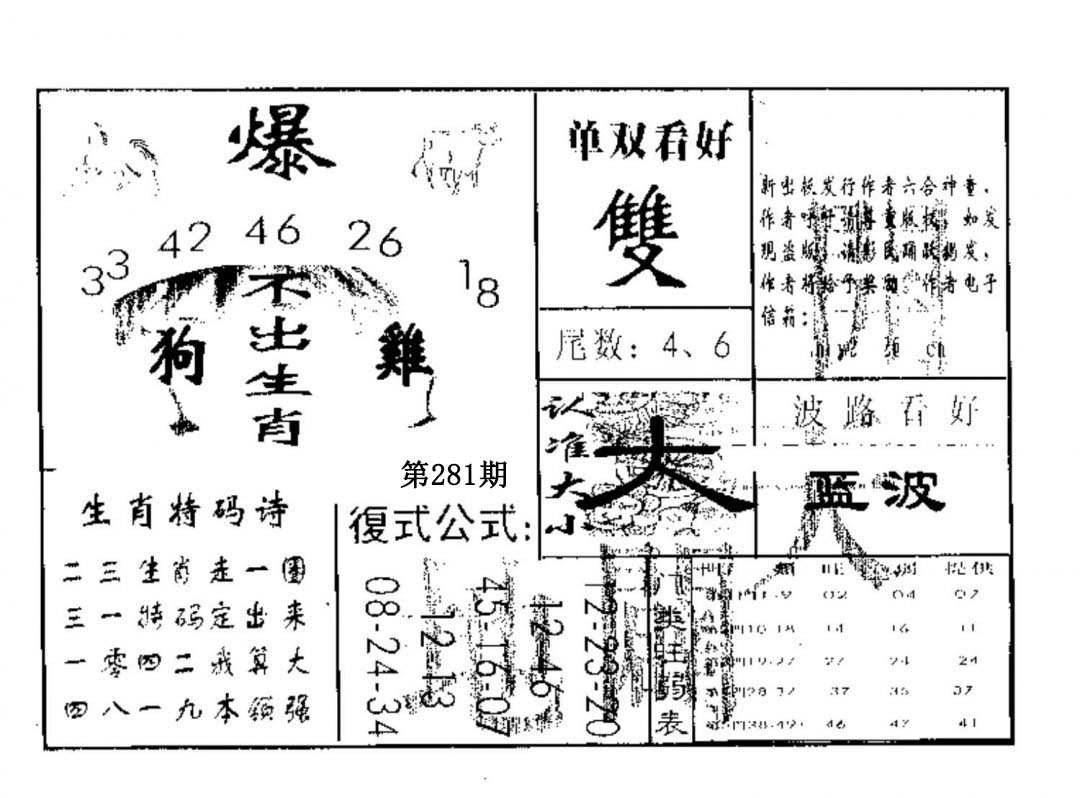 爆
33 42 46 26 18
不出生肖
狗 雞
第281期
单双看好
雙
尾数：4、6
新出板发行作者六合神童，
作者呼吁请尊重版权，如发
现盗版，请彩民踊跃揭发，
作者将给予奖励，作者电子
信箱：
认准大小
大
波路看好
蓝波
生肖特码诗
二三生肖走一圈
三一特码定出来
一零四二我算大
四八一九本领强
復式公式：
08-24-34
12 13
45-16-07
12-46
12-23-20
门类旺弱表
提供
02 04 07
14 16 11
27 24 24
37 35 37
46 47 41